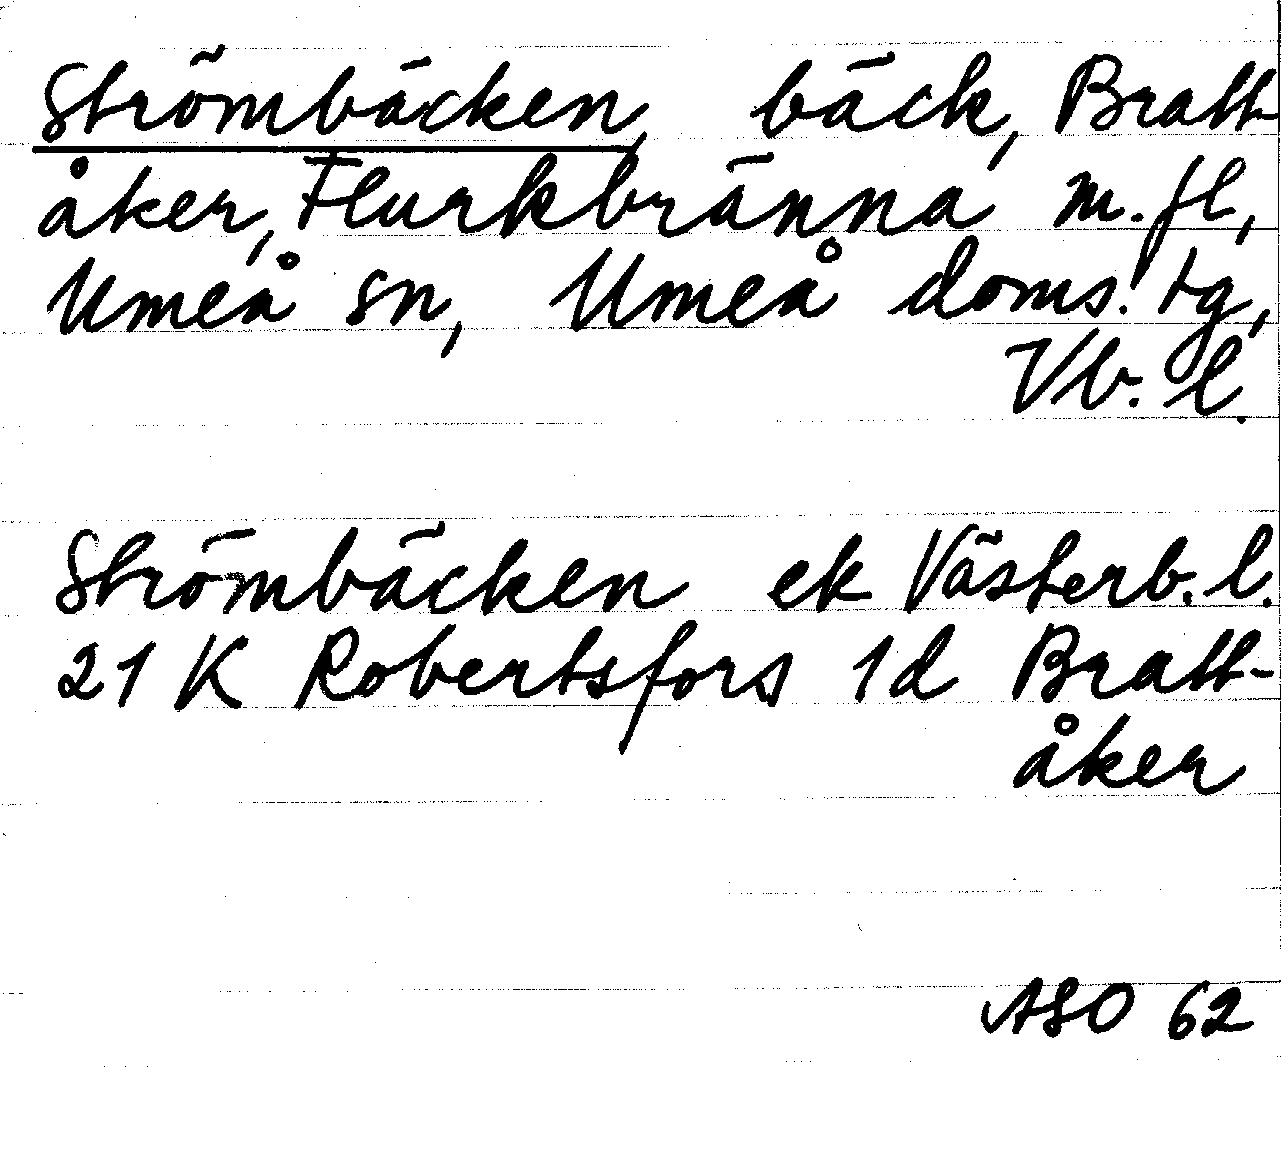 Strömbäcken, bäck, Bratt-
åker, Flurkbränna m. fl,
Umeå sn, Umeå doms. tg,
Vb. l.
Strömbäcken ek Västerb. l.
21 K Robertsfors 1d Bratt-
åker
ASO 62